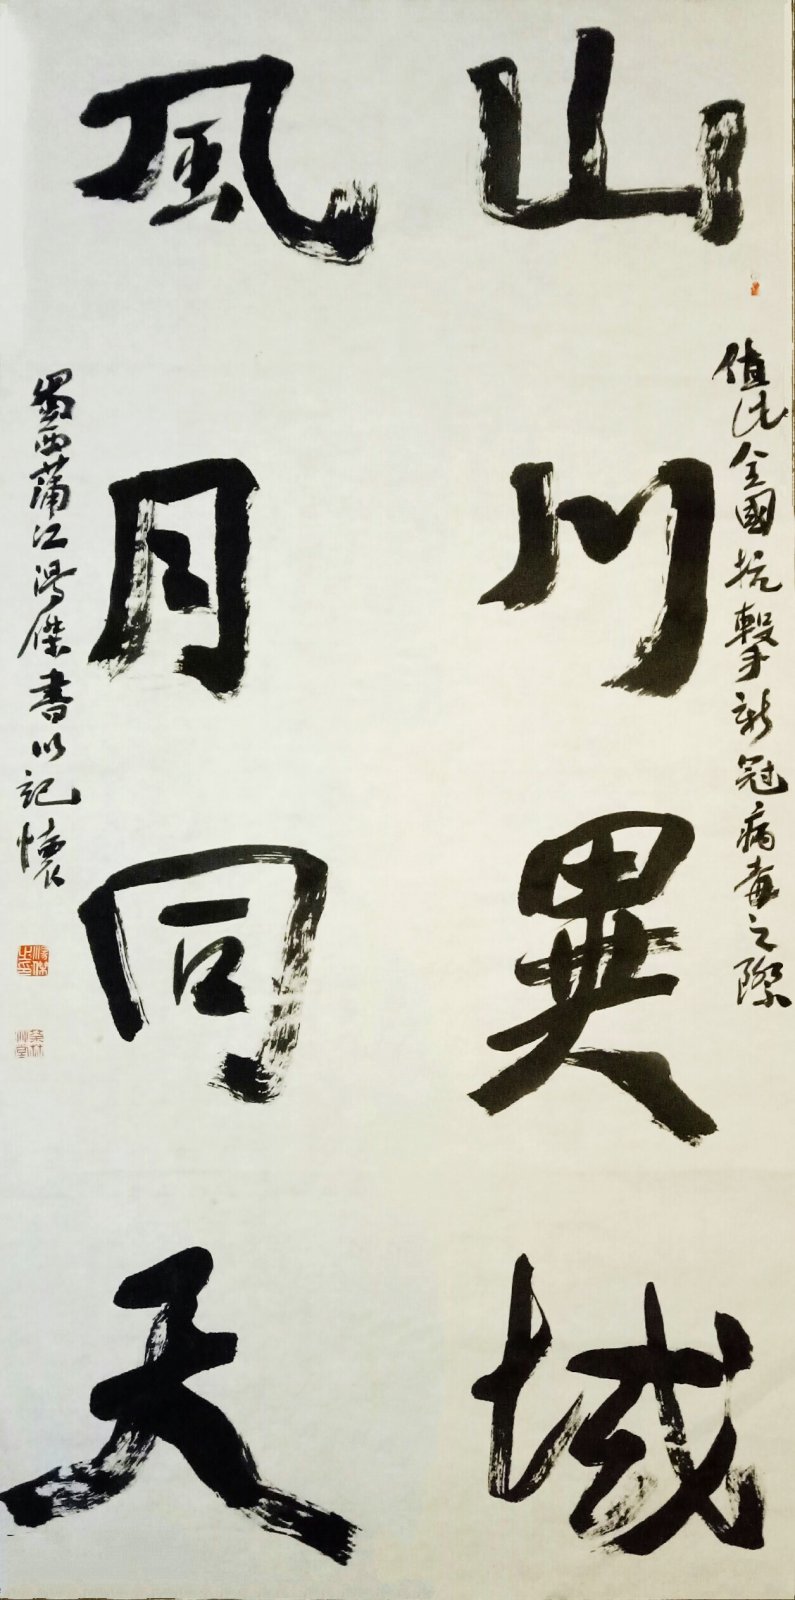 山川異域
風月同天
值此全國抗擊新冠病毒之際
蜀西蒲江湯傑書以記懷